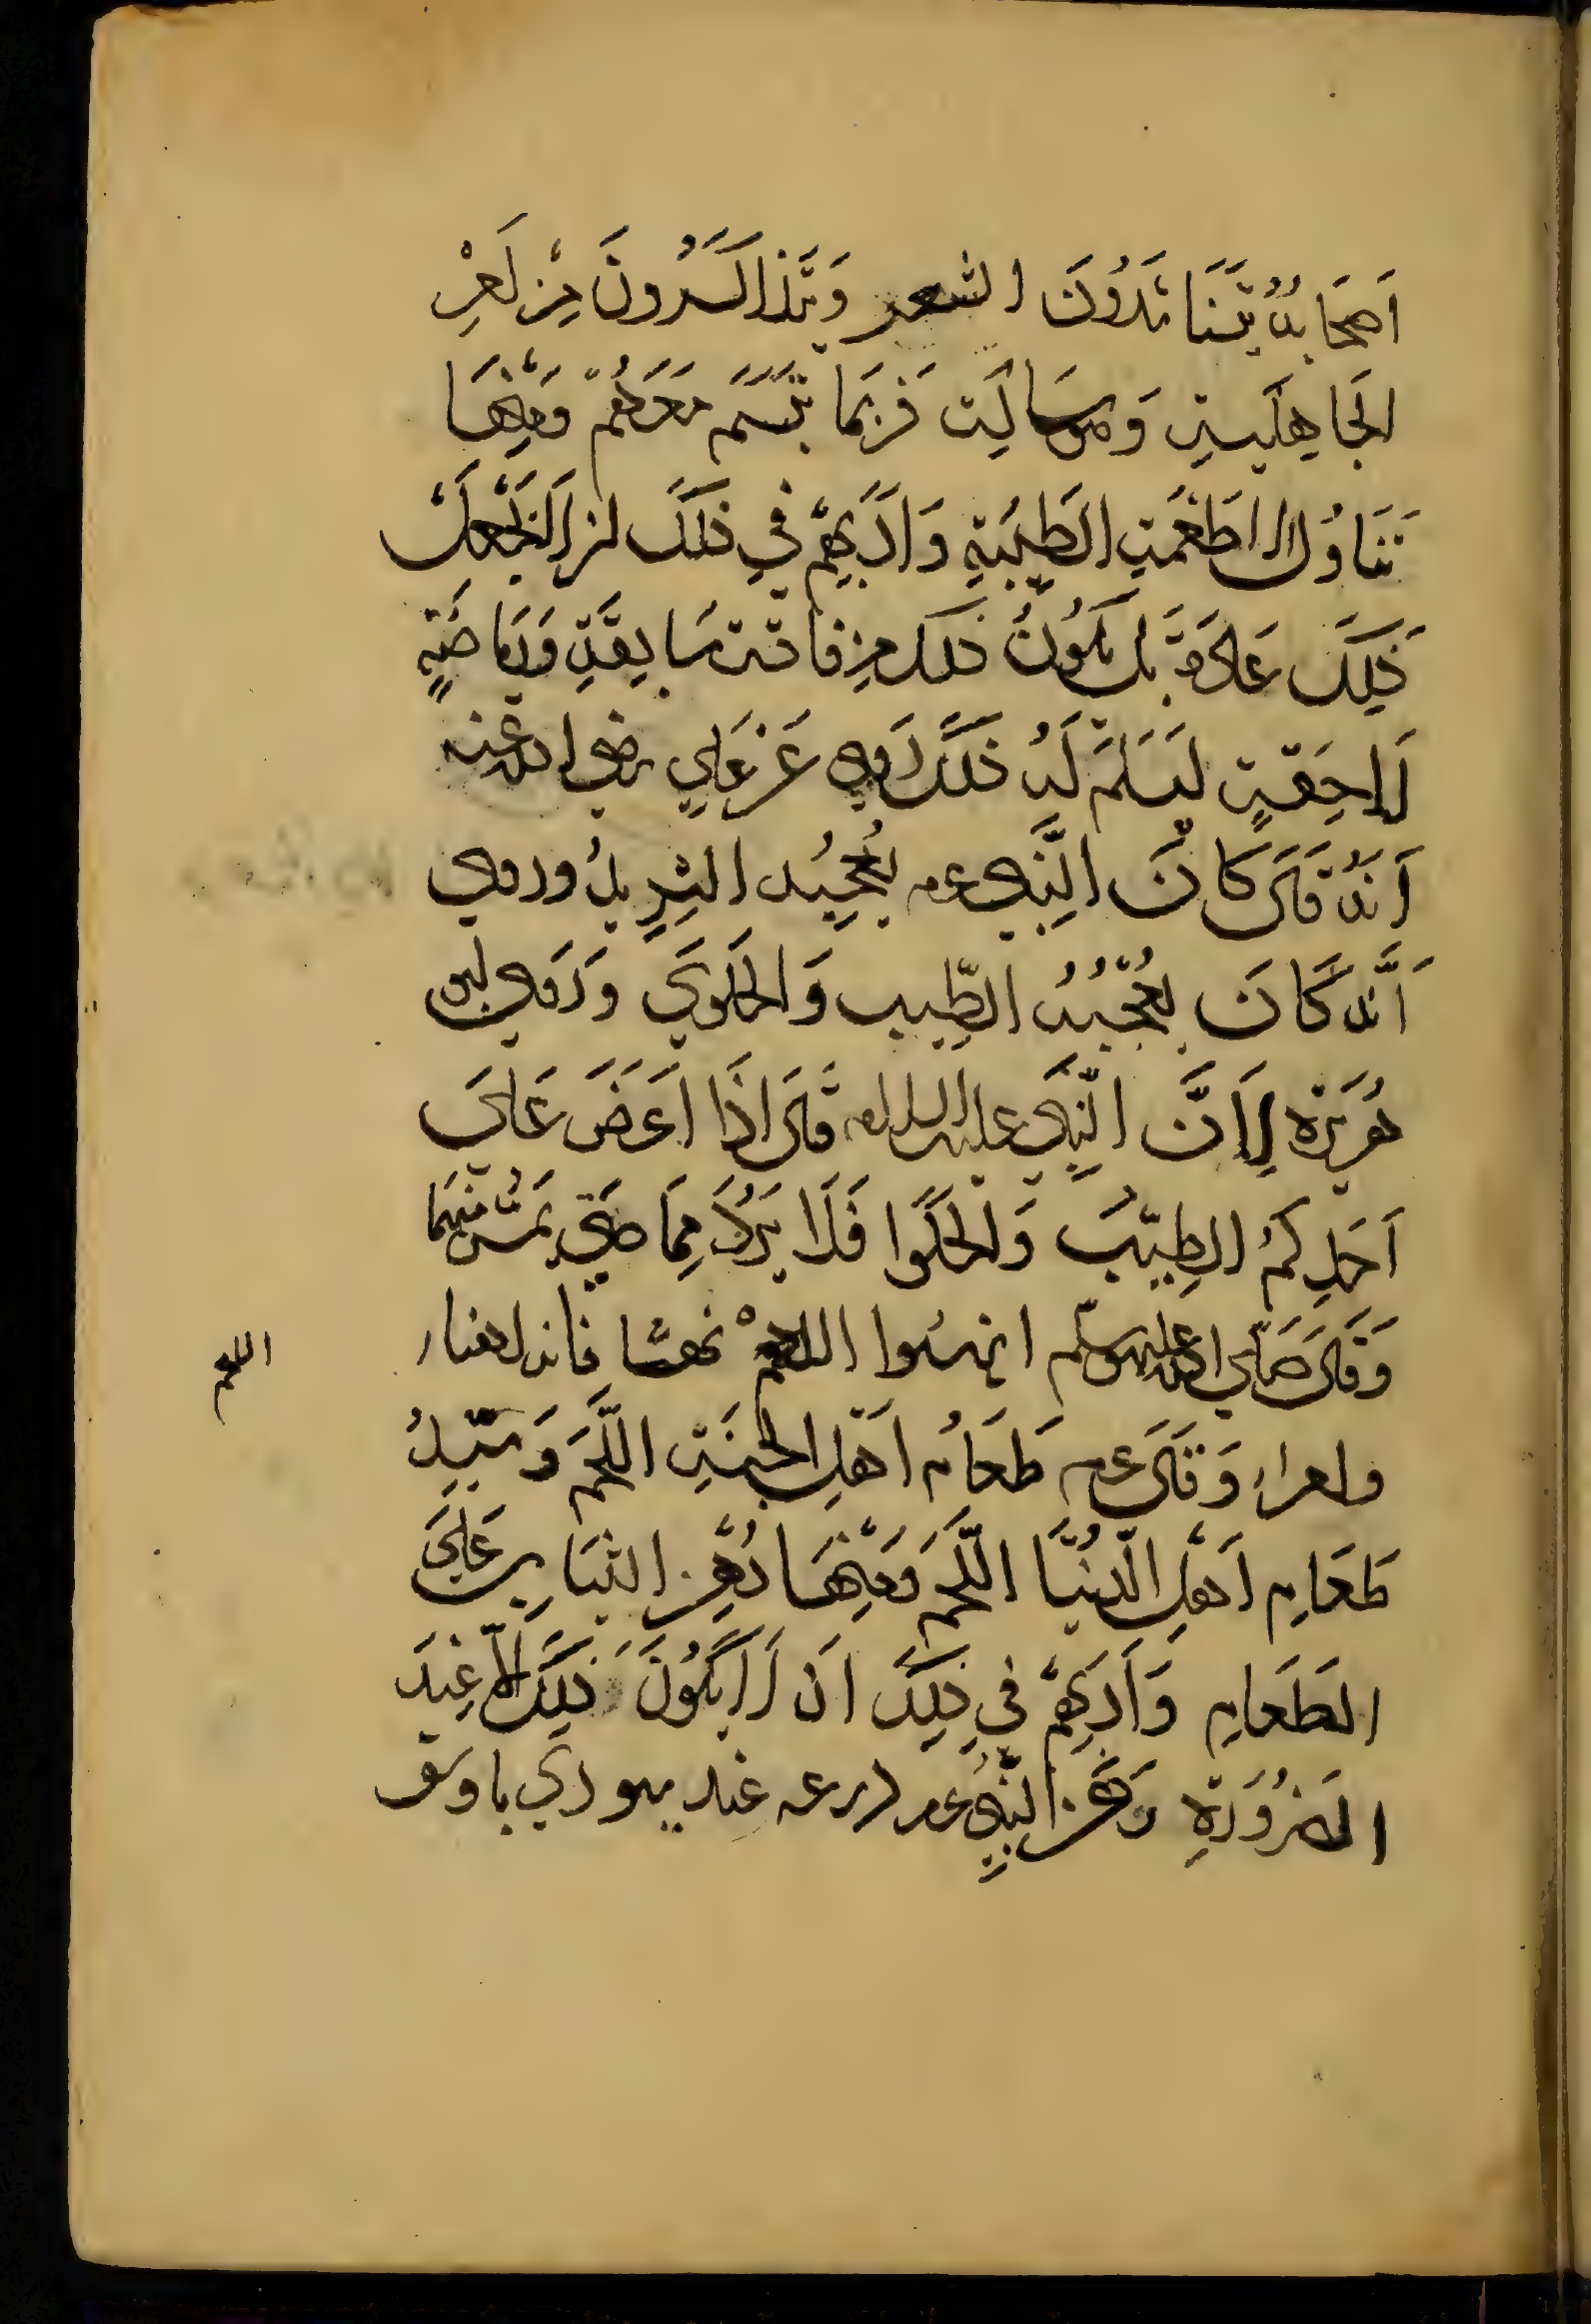 اَصْحَابُهُ يَتَنَاشَدُونَ الشعر وَيَتَذَاكَرُونَ مِنْ اَمْرِ
الجَاهِلِيَةِ وَهوَ سَاكِت فَرُبَمَا تَبَسَّمَ مَعَهُمْ وَمِنْهَا
تَنَاوُلُ الاطْعَمَةِ الطَيِّبَةِ وَاَدَبُهُمْ فِي ذَلَكَ اَنْ لَا يَجْعَلَ
ذَلِكَ عَادَةً بل يَكُونُ ذلك مِن فاقة سَابِقَةٍ وَرِيَاضَةٍ
لَاحِقَةٍ لِيَسْلَمَ لَهُ ذَلَكَ رُوِي عَنْ عَلِي رضي الله عنه
اَنَهُ قَالَ كَانَ النَّبِي عم يُعْجِبُه الثرِيدُ وروي
اَنَّهُ كَانَ يُعْجِبُهُ الطِّيب وَالحَلوَي وَرَوي ابو
هُرَيْرَة اَنَّ النَّبِي عليه السلام قَالَ اِذَا اعَرَضَ عَلَي
اَحَدِكمُ الطِيّب وَالحَلْوا فَلَا يَرُدّ مِمَا حَتّي يَمَسَّ مِنْهمَا
وَقَالَ صَلي الله عليه وسلم انهسُوا اللحم نهسًا فانه اهناء
وامراء وَقَالَ عم طَعَامُ اَهْلِ الجَنَةِ اللَّحْمَ وَسَيِّدُ
طَعَامِ اَهْلِ الدُّنْيَا اللَّحْمَ وَمِنْهَا رَهْنُ الثيَابِ عَلَي
الطَعَامِ وَاَدَبُهُمْ فِي ذَلِكَ اَن لَا يَكُونَ ذَلِكَ اِلَّا عِنْدَ
الضَرُورَةِ رَهَنَ النَّبِي عم درعه عند يهودي باوسق
اللحم